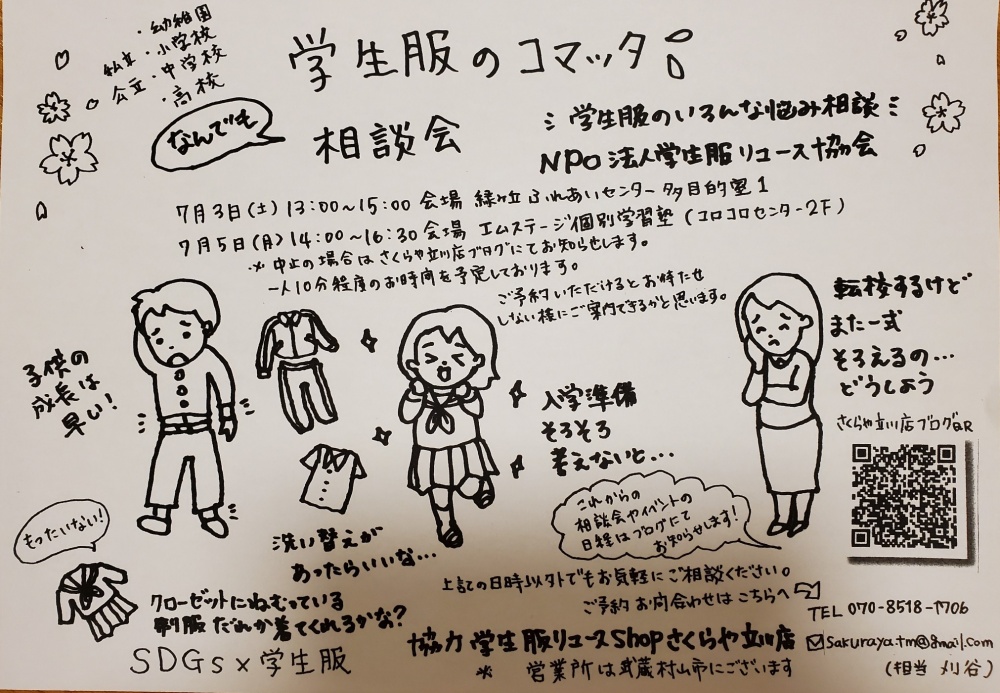 ・幼稚園
私立・小学校
公立・中学校
・高校
学生服のコマッタ!
なんでも
相談会
学生服のいろんな悩み相談
NPO法人学生服リユース協会
7月3日(土)13:00~15:00 会場 緑が丘ふれあいセンター多目的室1
7月5日(月)14:00~16:30会場 エムステージ個別学習塾(コロコロセンター2F)
※中止の場合はさくらや立川店ブログにてお知らせします。
一人10分程度のお時間を予定しております。
ご予約いただけるとお待たせ
しない様にご案内できるかと思います。
子供の
成長は
早い!
入学準備
そろそろ
考えないと…
転校するけど
また一式
そろえるの…
どうしよう
さくらや立川店ブログQR
これからの
相談会やイベントの
日程はブログにて
お知らせします!
もったいない!
洗い替えが
あったらいいな…
クローゼットにねむっている
制服だれか着てくれるかな?
SDGs×学生服
上記の日時以外でもお気軽にご相談ください。
ご予約お問合わせはこちらへ
TEL 070-8518-1706
sakuraya.tm@gmail.com
(担当 刈谷)
協力 学生服リユースShopさくらや立川店
※ 営業所は武蔵村山市にございます